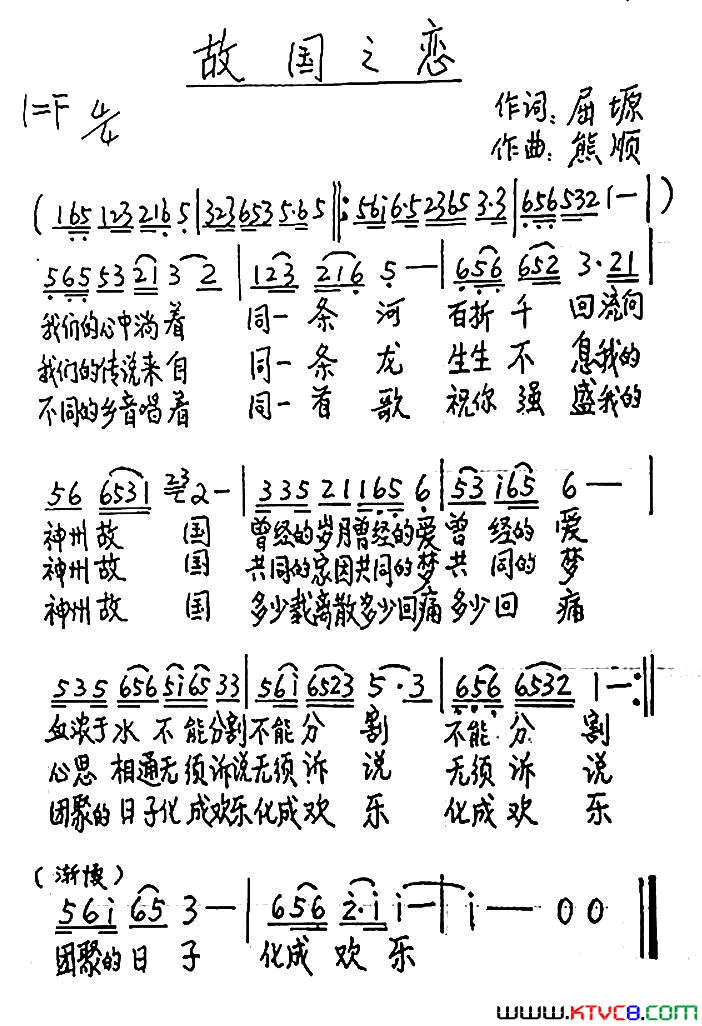 故国之恋
1=F 4/4
作词：屈塬
作曲：熊顺
(165 123 216 5|323 653 5·6 5‖:56i 6·5 2365 3·3|656 532 1—|)
565 53 21 3 2|123 216 5—|656 652 3·21|
我们的心中淌着 同一条河 百折千回流向
我们的传说来自 同一条龙 生生不息我的
不同的乡音唱着 同一首歌 祝你强盛我的
56 6531 23 2-|335 21 165 6|53 i65 6—|
神州故国 曾经的岁月曾经的爱曾经的爱
神州故国 共同的家园共同的梦共同的梦
神州故国 多少载离散多少回痛多少回痛
535 656 5i65 33|56i 6523 5·3|656 6532 1—:‖
血浓于水 不能分割不能分割 不能分割
心思相通无须诉说无须诉说 无须诉说
团聚的日子化成欢乐化成欢乐 化成欢乐
(渐慢)
56i 65 3—|656 2·i i—|i—00‖
团聚的日子 化成欢乐
www.KTVC8.com